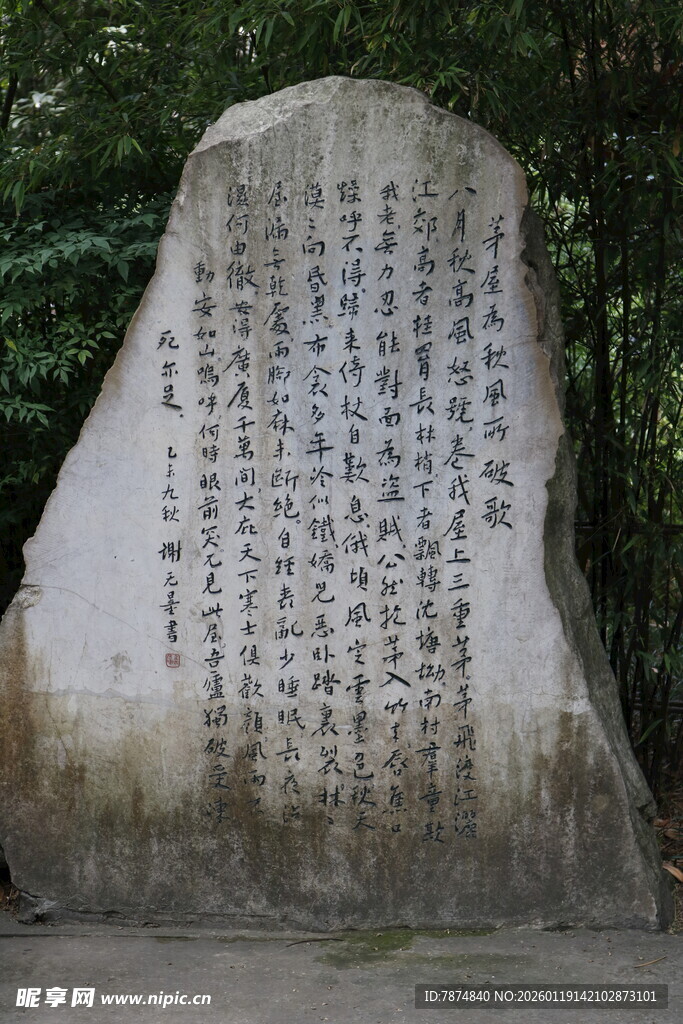 茅屋為秋風所破歌
八月秋高風怒號卷我屋上三重茅茅飛渡江灑
江郊高者挂罥長林梢下者飄轉沈塘坳南村羣童欺
我老無力忍能對面為盜賊公然抱茅入竹去唇焦口
燥呼不得歸來倚杖自歎息俄頃風定雲墨色秋天
漠〻向昏黑布衾多年冷似鐵嬌兒惡臥踏裏裂牀〻
屋漏無乾處雨腳如麻未斷絕。自經喪亂少睡眠長夜沾
濕何由徹安得廣厦千萬間大庇天下寒士俱歡顏風雨不
動安如山嗚呼何時眼前突兀見此屋吾廬獨破受凍
死亦足
乙未九秋 謝无量書
昵享网 www.nipic.cn
ID:7874840 NO:20260119142102873101